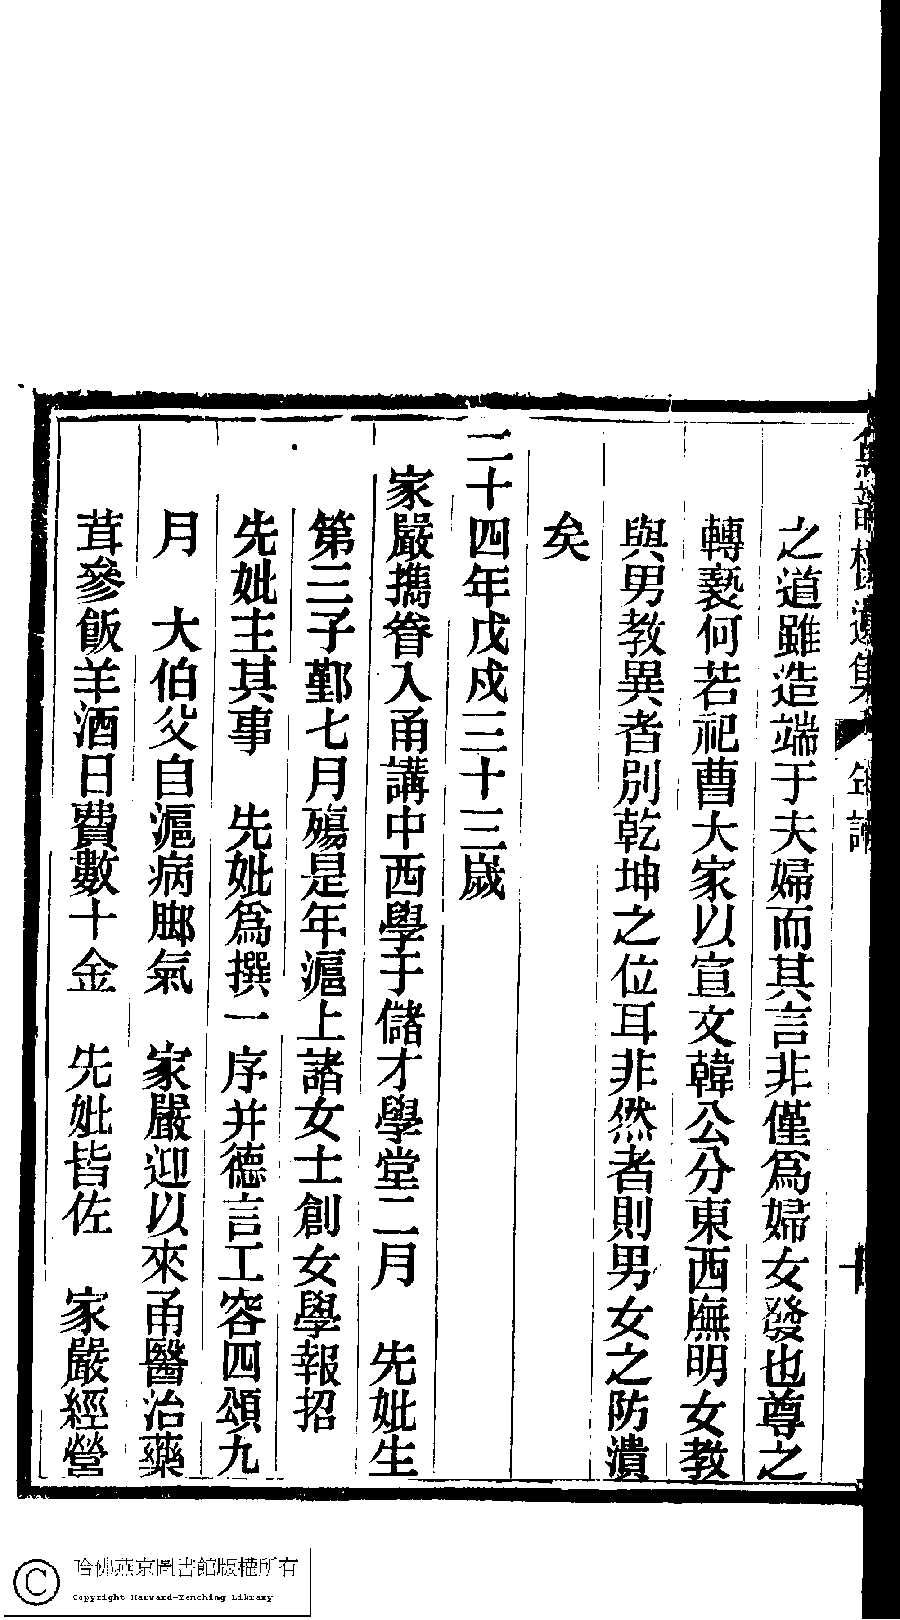 遺集 年譜
之道雖造端于夫婦而其言非僅爲婦女發也尊之
轉褻何若祀曹大家以宣文韓公分東西廡明女教
與男教異者別乾坤之位耳非然者則男女之防潰
矣
二十四年戊戌三十三歲
家嚴攜眷入甬講中西學于儲才學堂二月 先妣生
第三子鄞七月殤是年滬上諸女士創女學報招
先妣主其事 先妣爲撰一序并德言工容四頌九
月 大伯父自滬病脚氣 家嚴迎以來甬醫治藥
茸參飯羊酒日費數十金 先妣皆佐 家嚴經營
哈佛燕京圖書館版權所有
Copyright Harvard-Yenching Library